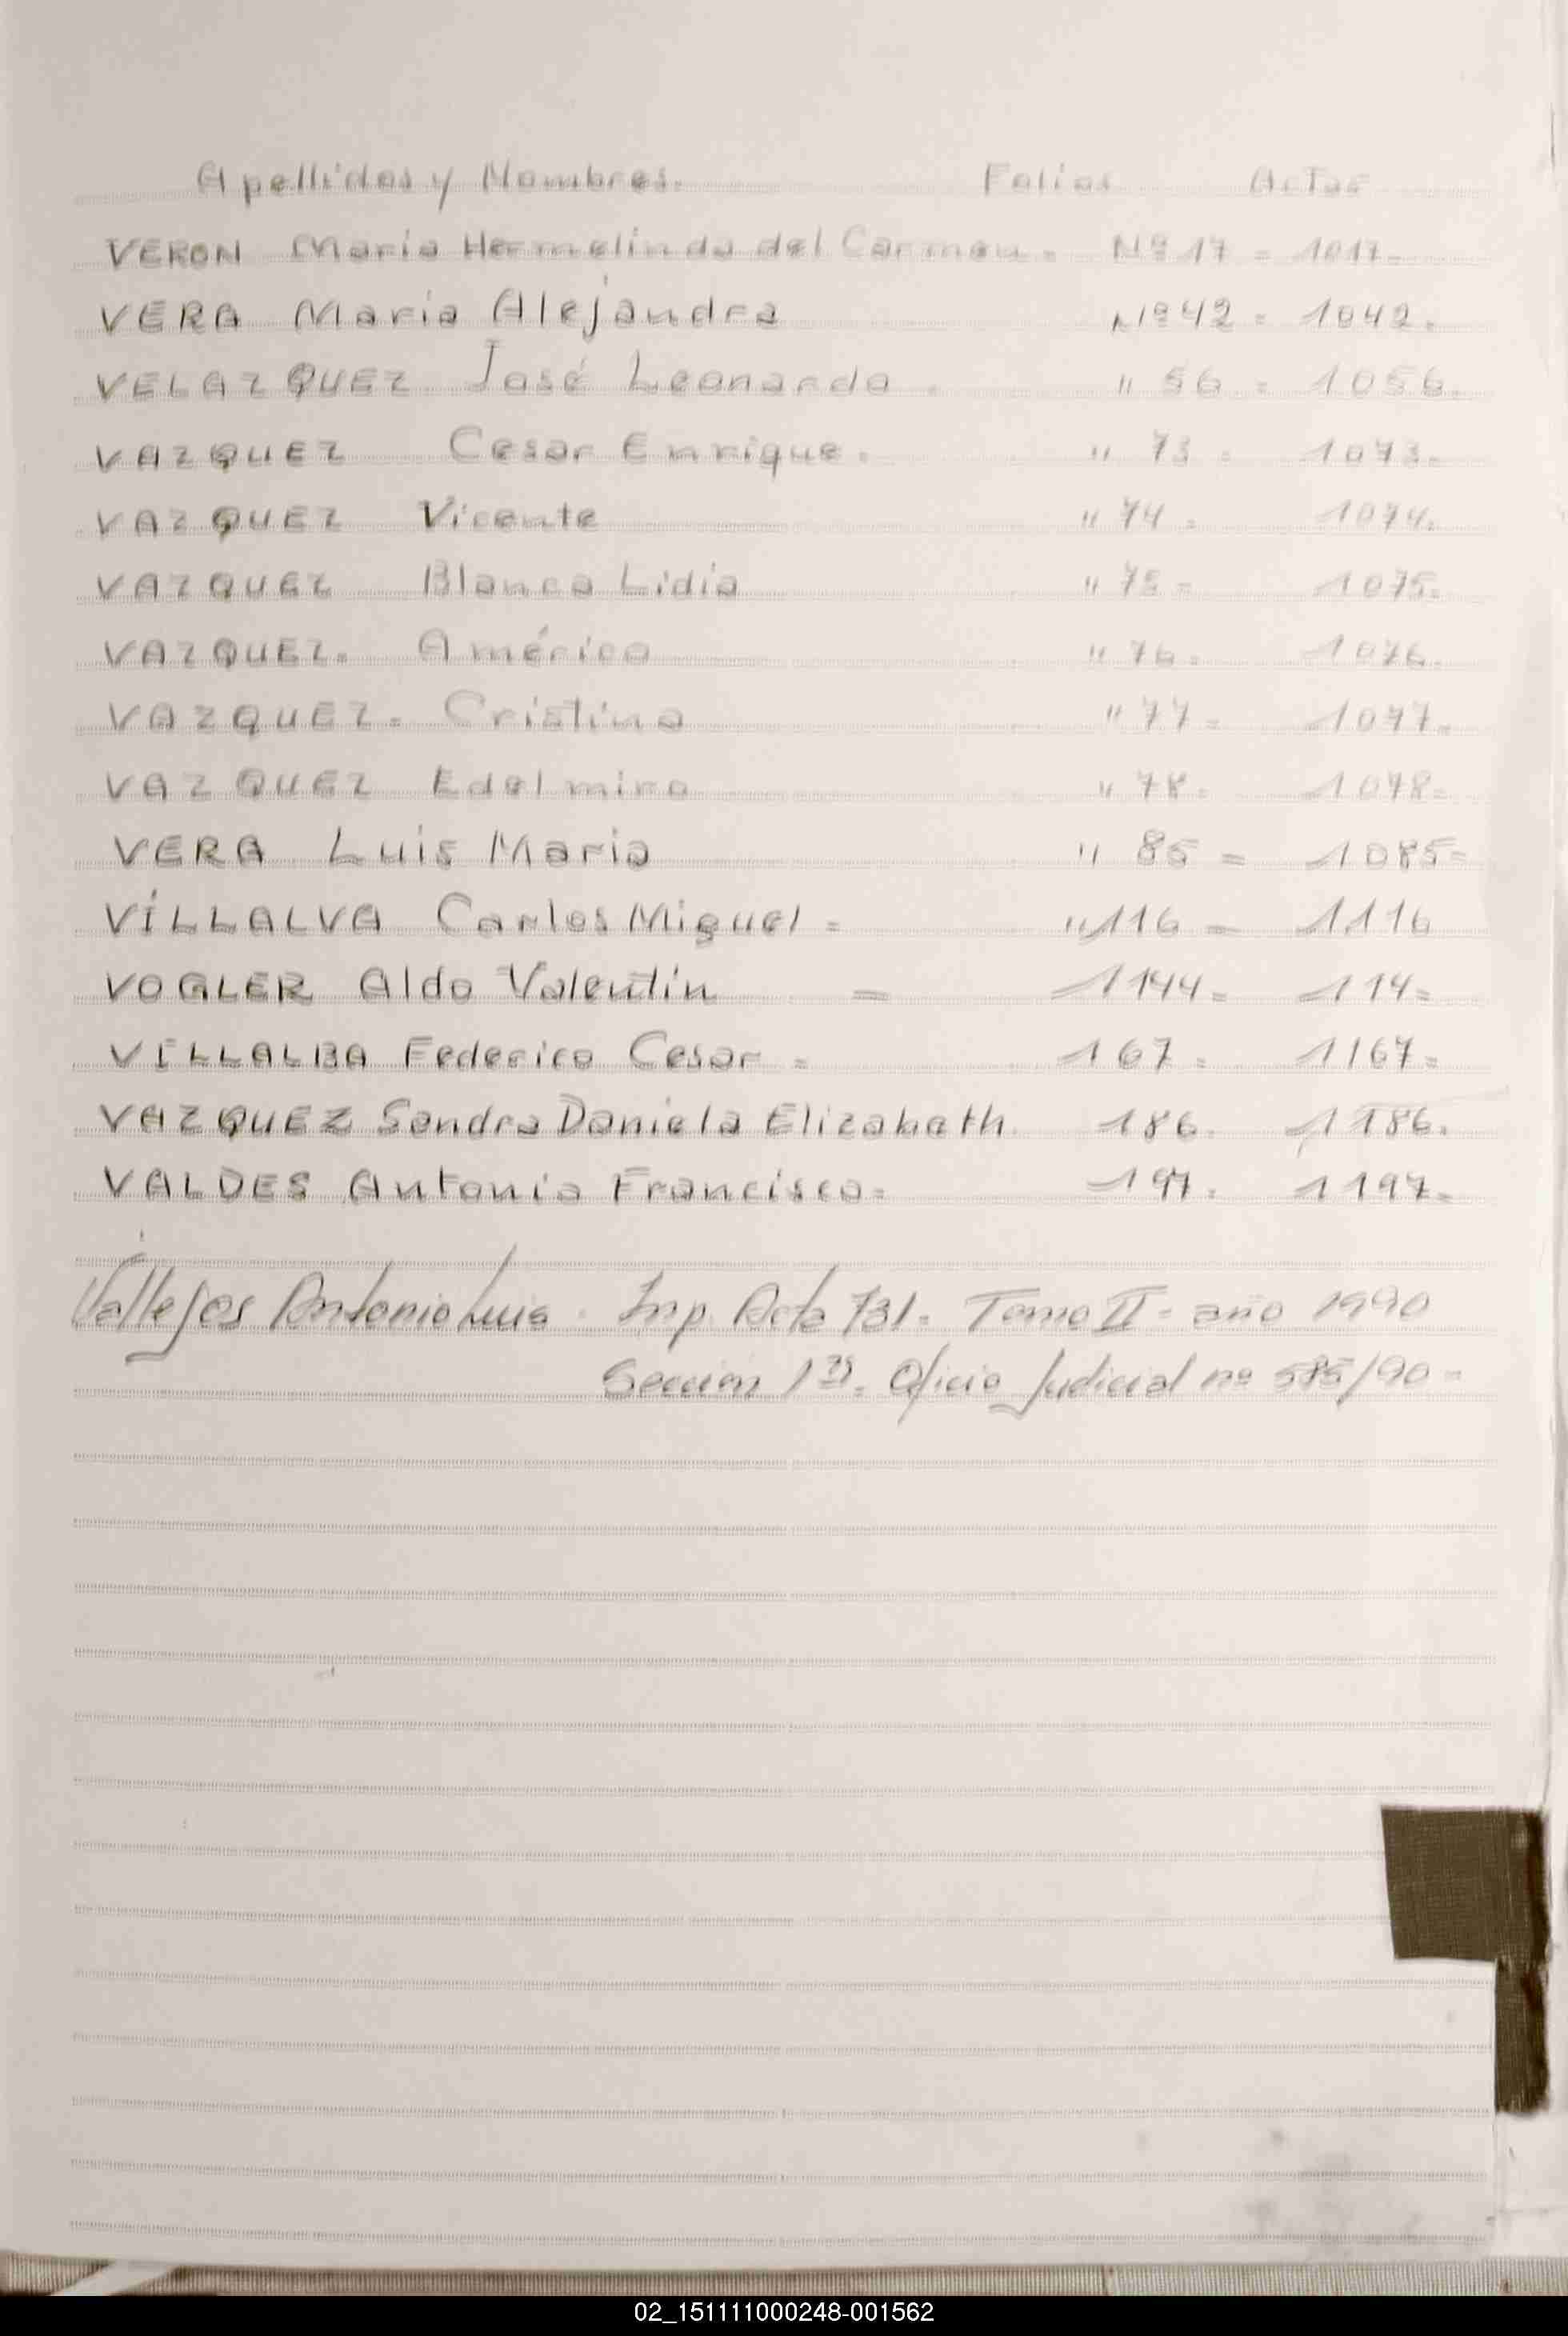 Apellidos y Nombres. Folios Actas
VERON Maria Hermelinda del Carmen. Nº 17 = 1017.
VERA Maria Alejandra Nº 42 = 1042.
VELAZQUEZ José Leonardo. " 56 = 1056.
VAZQUEZ Cesar Enrique. " 73 = 1073.
VAZQUEZ Vicente " 74 = 1074.
VAZQUEZ Blanca Lidia " 75 = 1075.
VAZQUEZ. Américo " 76. 1076.
VAZQUEZ. Cristina " 77 = 1077.
VAZQUEZ Edelmiro " 78. 1078.
VERA Luis Maria " 85 = 1085=
VILLALVA Carlos Miguel = " 116 = 1116
VOGLER Aldo Valentin = 1144= 114=
VILLALBA Federico Cesar = 167. 1167=
VAZQUEZ Sandra Daniela Elizabeth 186. 1186.
VALDES Antonio Francisco= 197. 1197.
Vallejos Antonio Luis. Imp. Acta 731. Tomo II - año 1990
Sección 1ra. Oficio Judicial nº 585/90 =
02_151111000248-001562